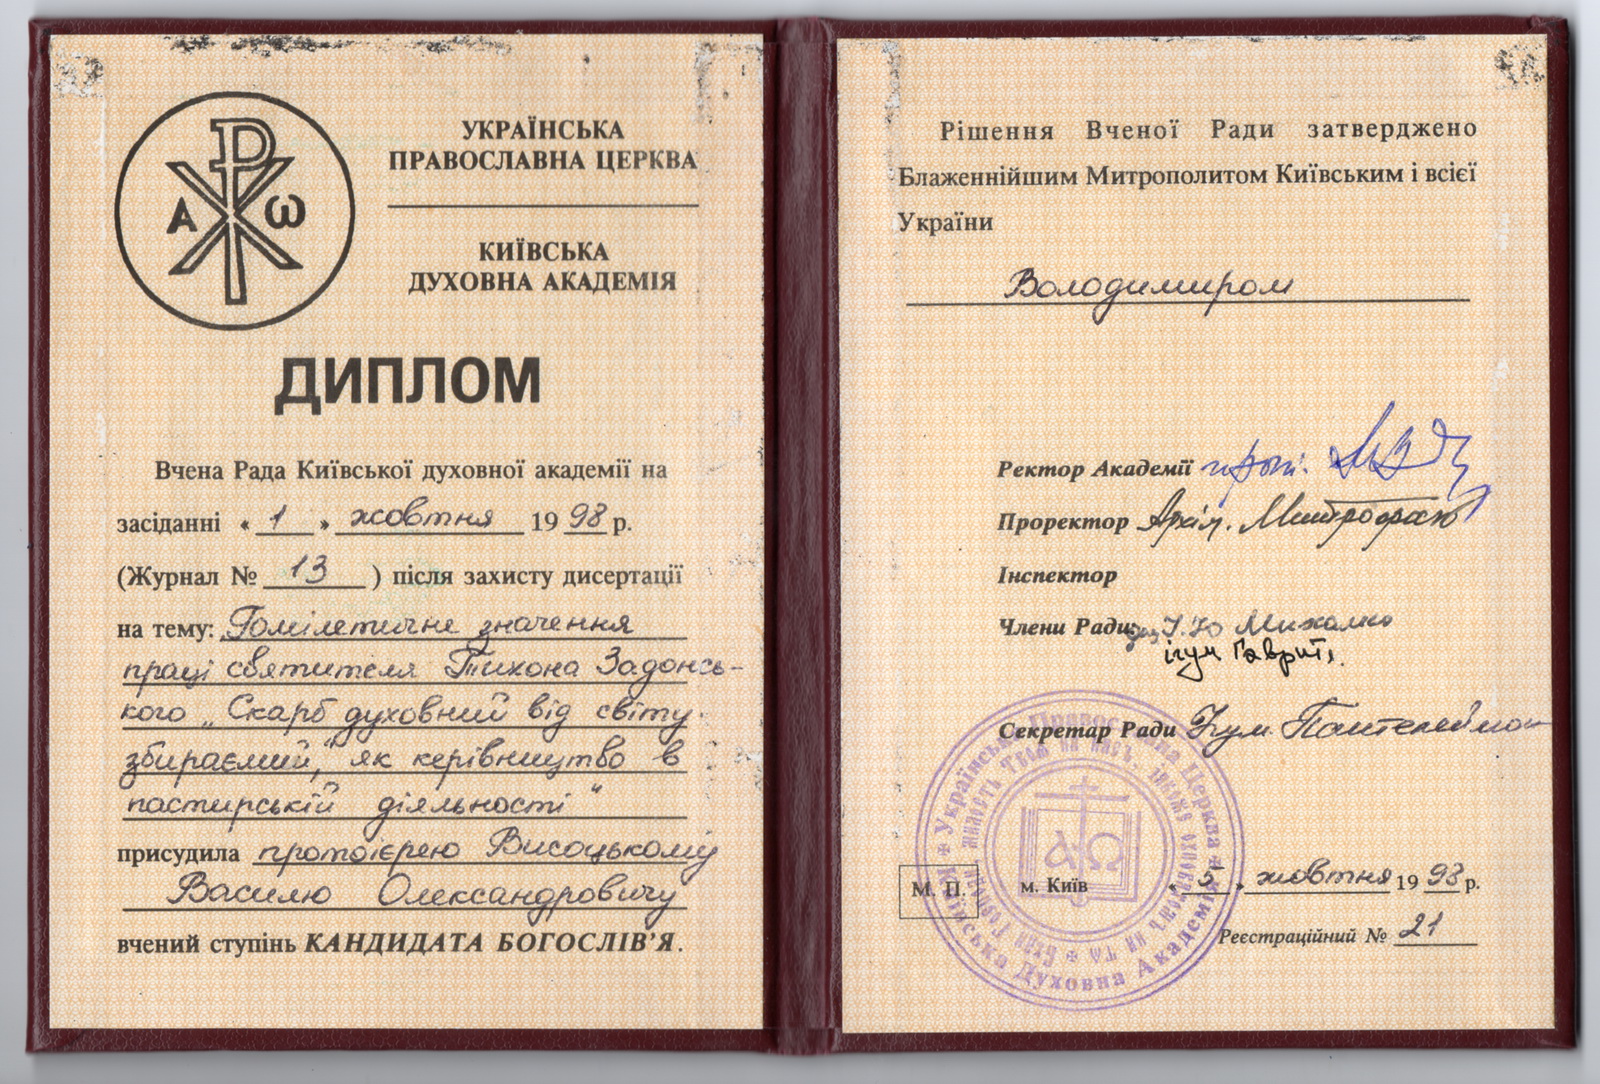 Α ω
УКРАЇНСЬКА
ПРАВОСЛАВНА ЦЕРКВА
КИЇВСЬКА
ДУХОВНА АКАДЕМІЯ
ДИПЛОМ
Вчена Рада Київської духовної академії на
засіданні « 1 » жовтня 19 98 р.
(Журнал № 13 ) після захисту дисертації
на тему: „Гомілетичне значення
праці святителя Тихона Задонсь-
кого „Скарб духовний від світу
збираємий", як керівництво в
пастирській діяльності"
присудила протоієрею Висоцькому
Василю Олександровичу
вчений ступінь КАНДИДАТА БОГОСЛІВ'Я.
Рішення Вченої Ради затверджено
Блаженнійшим Митрополитом Київським і всієї
України
Володимиром
Ректор Академії прот.
Проректор Архім. Митрофан
Інспектор
Члени Ради: І. Ю Михалко
ігум Гавриїл
Секретар Ради Ігум. Пантелеймон
Українська Православна Церква
Київська Духовна Академія
ΑΩ
М. П. м. Київ « 5 » жовтня 19 98 р.
Реєстраційний № 21